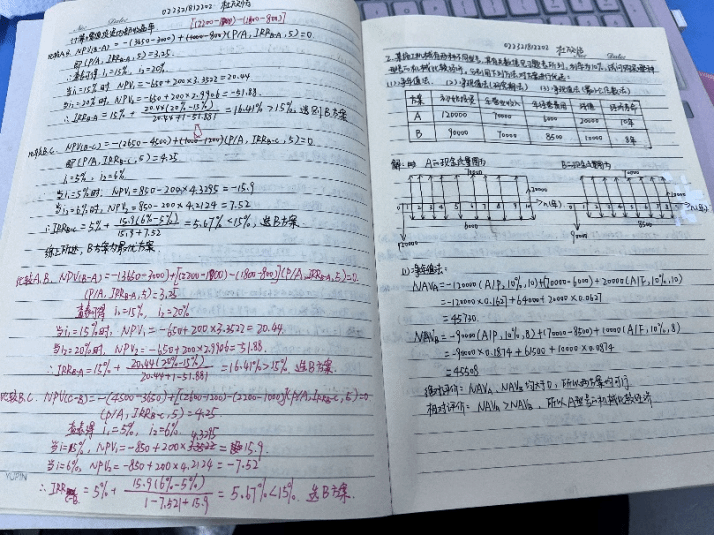 022321812202
计算差额投资内部收益率 [(2200-1800)-(1800-800)]
比较A.B. NPV(B-A) = -(3650-3000)+(1000-800)(P/A, IRRB-A, 5)=0
即(P/A, IRRB-A, 5)=3.25.
查表可得 i₁=15%, i₂=20%
当i=15%时 NPV₁=-650+200×3.3522=20.44
当i₂=20%时 NPV₂=-650+200×2.9906=-51.88.
∴IRRB-A=15%+20.44(20%-15%)/20.44+|-51.88|=16.41%>15%, 选B方案
比较B.C. NPV(B-C)=-(3650-4500)+(1000-1200)(P/A, IRRB-C, 5)=0
即(P/A, IRRB-C, 5)=4.25
i₁=5%, i₂=6%
当i₁=5%时, NPV₁=850-200×4.3295=-15.9
当i₂=6%时, NPV₂=850-200×4.2124=7.52
∴IRRB-C=5%+15.9(6%-5%)/15.9+7.52=5.67%<15%, 选B方案.
综上所述, B方案为最优方案.
比较A.B. NPV(B-A)=-(3650-3000)+[(2200-1800)-(1800-800)](P/A, IRRB-A, 5)=0.
(P/A, IRRB-A, 5)=3.25
查表可得 i₁=15%, i₂=20%
当i₁=15%时, NPV₁=-650+200×3.3522=20.44
当i₂=20%时, NPV₂=-650+200×2.9906=-51.88.
∴IRRB-A=15%+20.44(20%-15%)/20.44+|-51.88|=16.41%>15%. 选B方案.
比较B.C. NPV(C-B)=-(4500-3650)+[(2600-1200)-(2200-1000)](P/A, IRRB-C, 5)=0
(P/A, IRRB-C, 5)=4.25
查表得 i₁=5%, i₂=6%
4.3295
当i=5%, NPV₁=-850+200×=15.9
当i=6%, NPV₂=-850+200×4.2124=-7.52
∴IRR=5%+15.9(6%-5%)/|-7.52|+15.9=5.67%<15%. 选B方案.
YUPIN
022321812202
(1)净年值法. (2)净现值法 (3)净现值法
方案 年经营费用 残值
A 120000 70000 6000 20000 10年
B 90000 70000 8500 10000 8年
解: (1) A的现金流量图为 B的现金流量图为
70000 70000
20000
0 1 2 3 4 5 6 7 8 9 10 0 1 2 3 4 5 6 7 8
120000 6000 90000 8500
(1)净年值法:
NAVA=-120000(A/P, 10%, 10)+(70000-6000)+20000(A/F, 10%, 10)
=-120000×0.1627+64000+20000×0.0627
=45730.
NAVB=-90000(A/P, 10%, 8)+(70000-8500)+10000(A/F, 10%, 8)
=-90000×0.1874+61500+10000×0.0874
=45508
绝对评价: NAVA、NAVB均大于0, 所以两方案均可行
相对评价: NAVA>NAVB, 所以A型号的机械比较经济